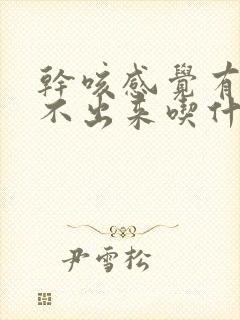 幹咳感覺有
不出來喫什
尹雪松